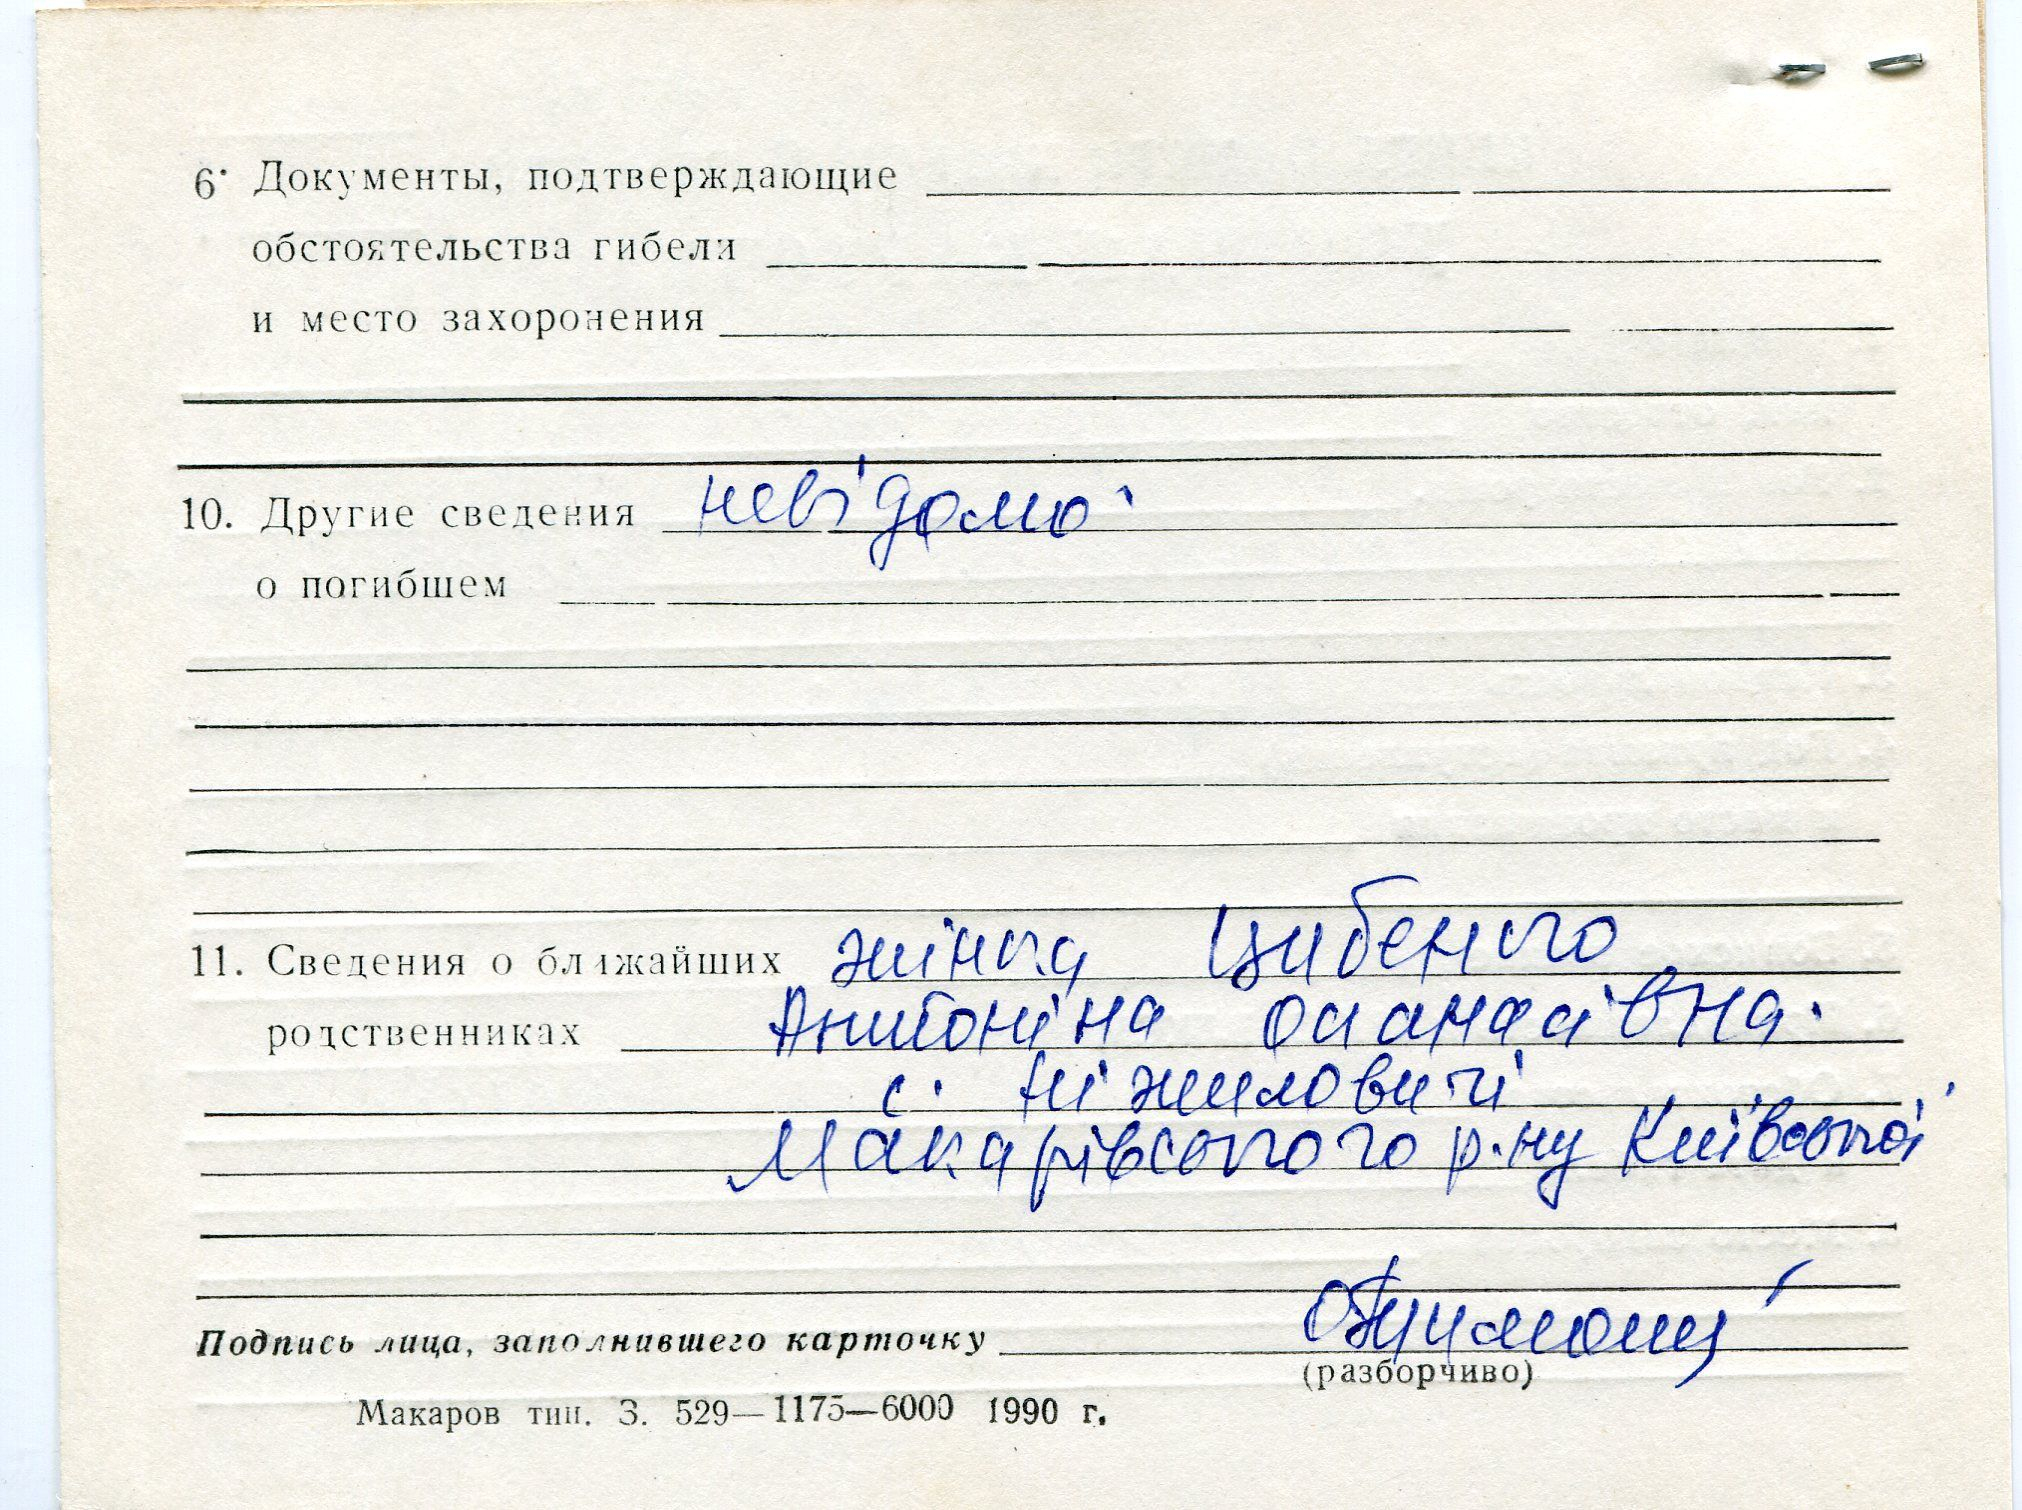 6. Документы, подтверждающие
обстоятельства гибели
и место захоронения
10. Другие сведения невідомо.
о погибшем
11. Сведения о ближайших жінка Цибенко
родственниках Антоніна Опанасівна.
с. Ніжиловичі
Макарівського р-ну Київської
Подпись лица, заполнившего карточку
(разборчиво)
Макаров тип. З. 529—1175—6000 1990 г.